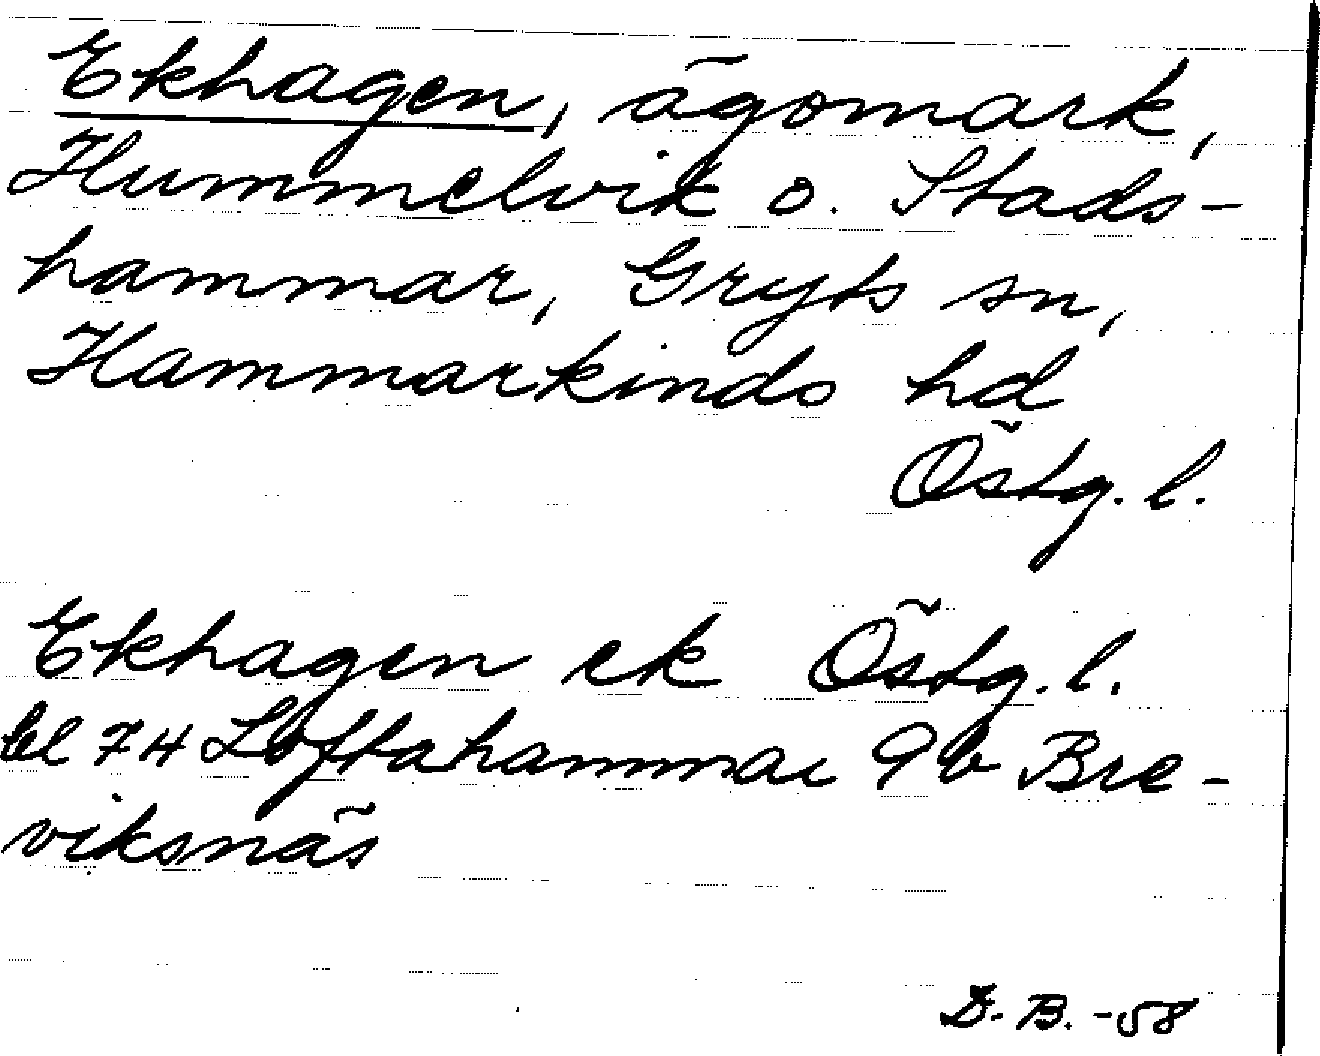 Ekhagen, ägomark,
Hummelvik o. Stads-
hammar, Gryts sn,
Hammarkinds hd
Östg. l.
Ekhagen ek Östg. l.
bl 74 Loftahammar 9b Bre-
viksnäs
D. B. -58